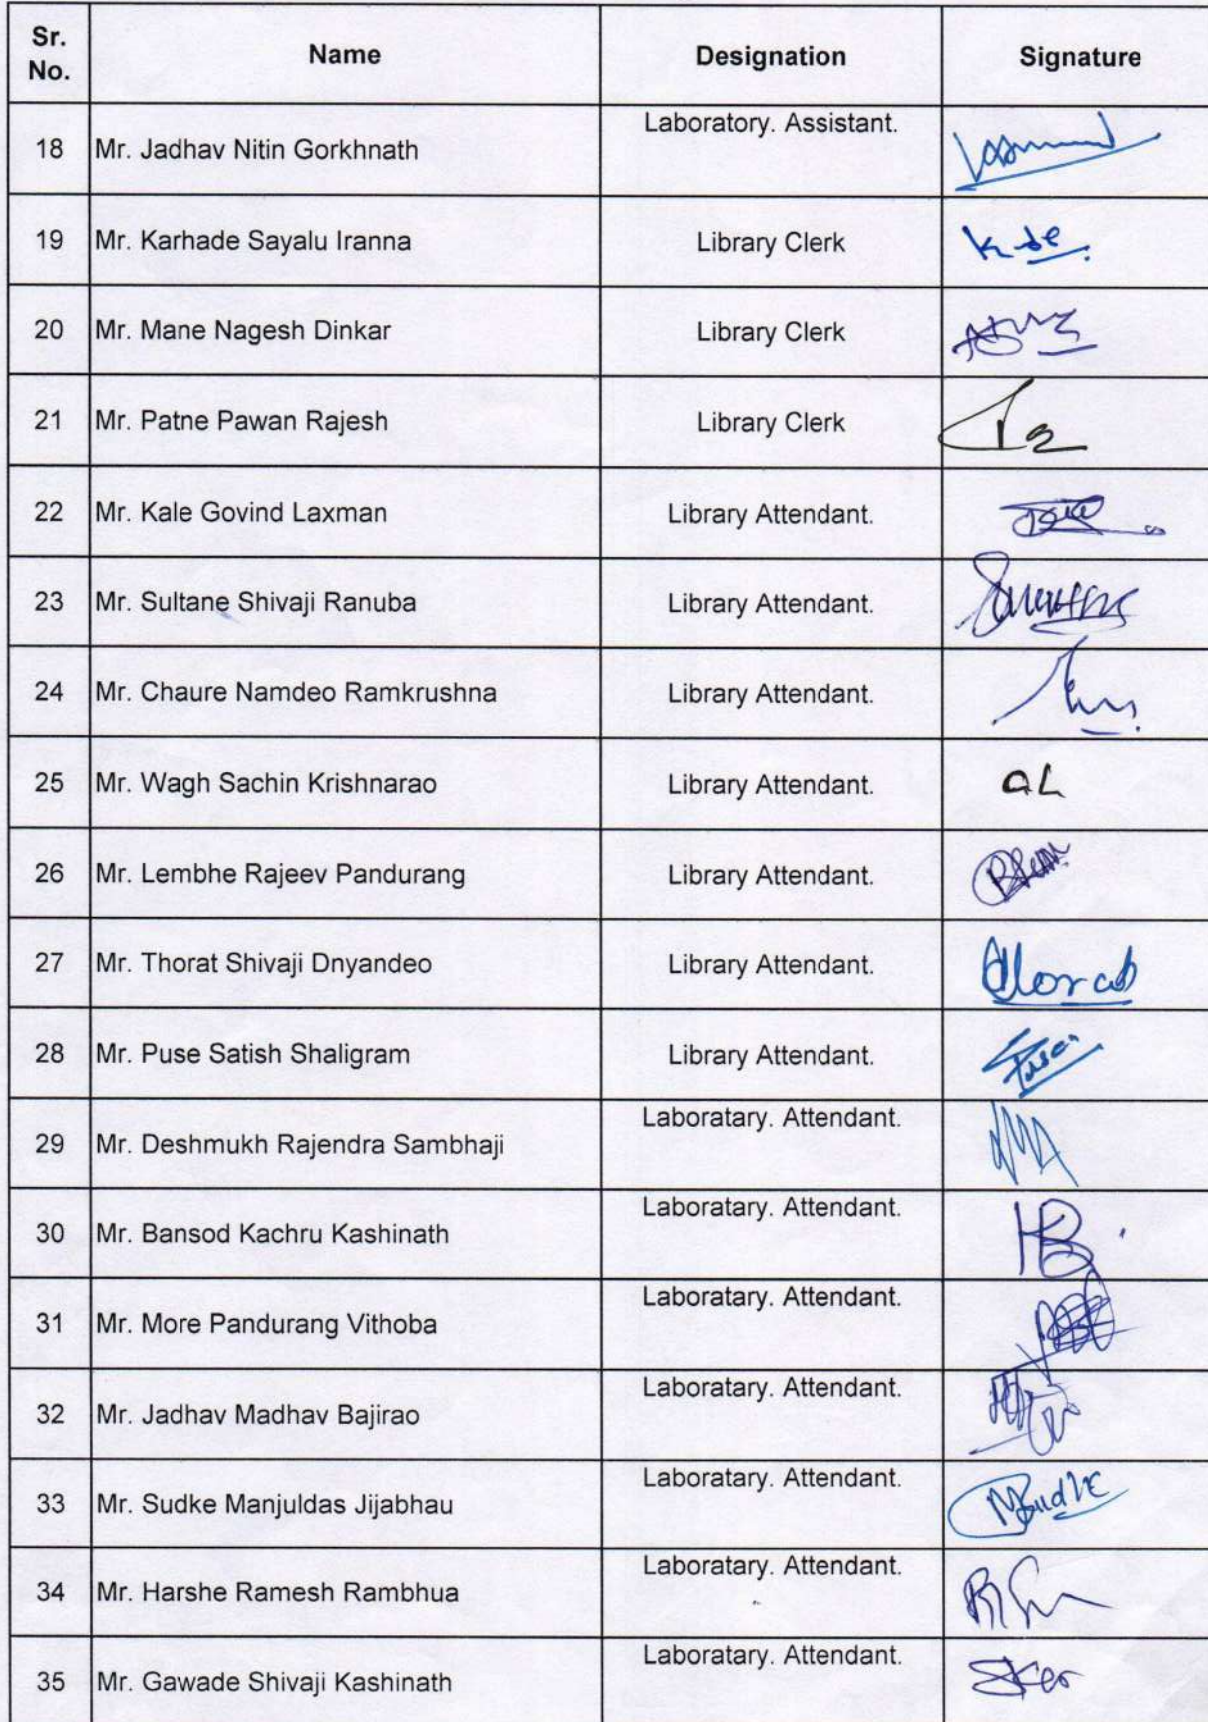 Sr. No. Name Designation Signature
18 Mr. Jadhav Nitin Gorkhnath Laboratory. Assistant.
19 Mr. Karhade Sayalu Iranna Library Clerk
20 Mr. Mane Nagesh Dinkar Library Clerk
21 Mr. Patne Pawan Rajesh Library Clerk
22 Mr. Kale Govind Laxman Library Attendant.
23 Mr. Sultane Shivaji Ranuba Library Attendant.
24 Mr. Chaure Namdeo Ramkrushna Library Attendant.
25 Mr. Wagh Sachin Krishnarao Library Attendant.
26 Mr. Lembhe Rajeev Pandurang Library Attendant.
27 Mr. Thorat Shivaji Dnyandeo Library Attendant.
28 Mr. Puse Satish Shaligram Library Attendant.
29 Mr. Deshmukh Rajendra Sambhaji Laboratary. Attendant.
30 Mr. Bansod Kachru Kashinath Laboratary. Attendant.
31 Mr. More Pandurang Vithoba Laboratary. Attendant.
32 Mr. Jadhav Madhav Bajirao Laboratary. Attendant.
33 Mr. Sudke Manjuldas Jijabhau Laboratary. Attendant.
34 Mr. Harshe Ramesh Rambhua Laboratary. Attendant.
35 Mr. Gawade Shivaji Kashinath Laboratary. Attendant.